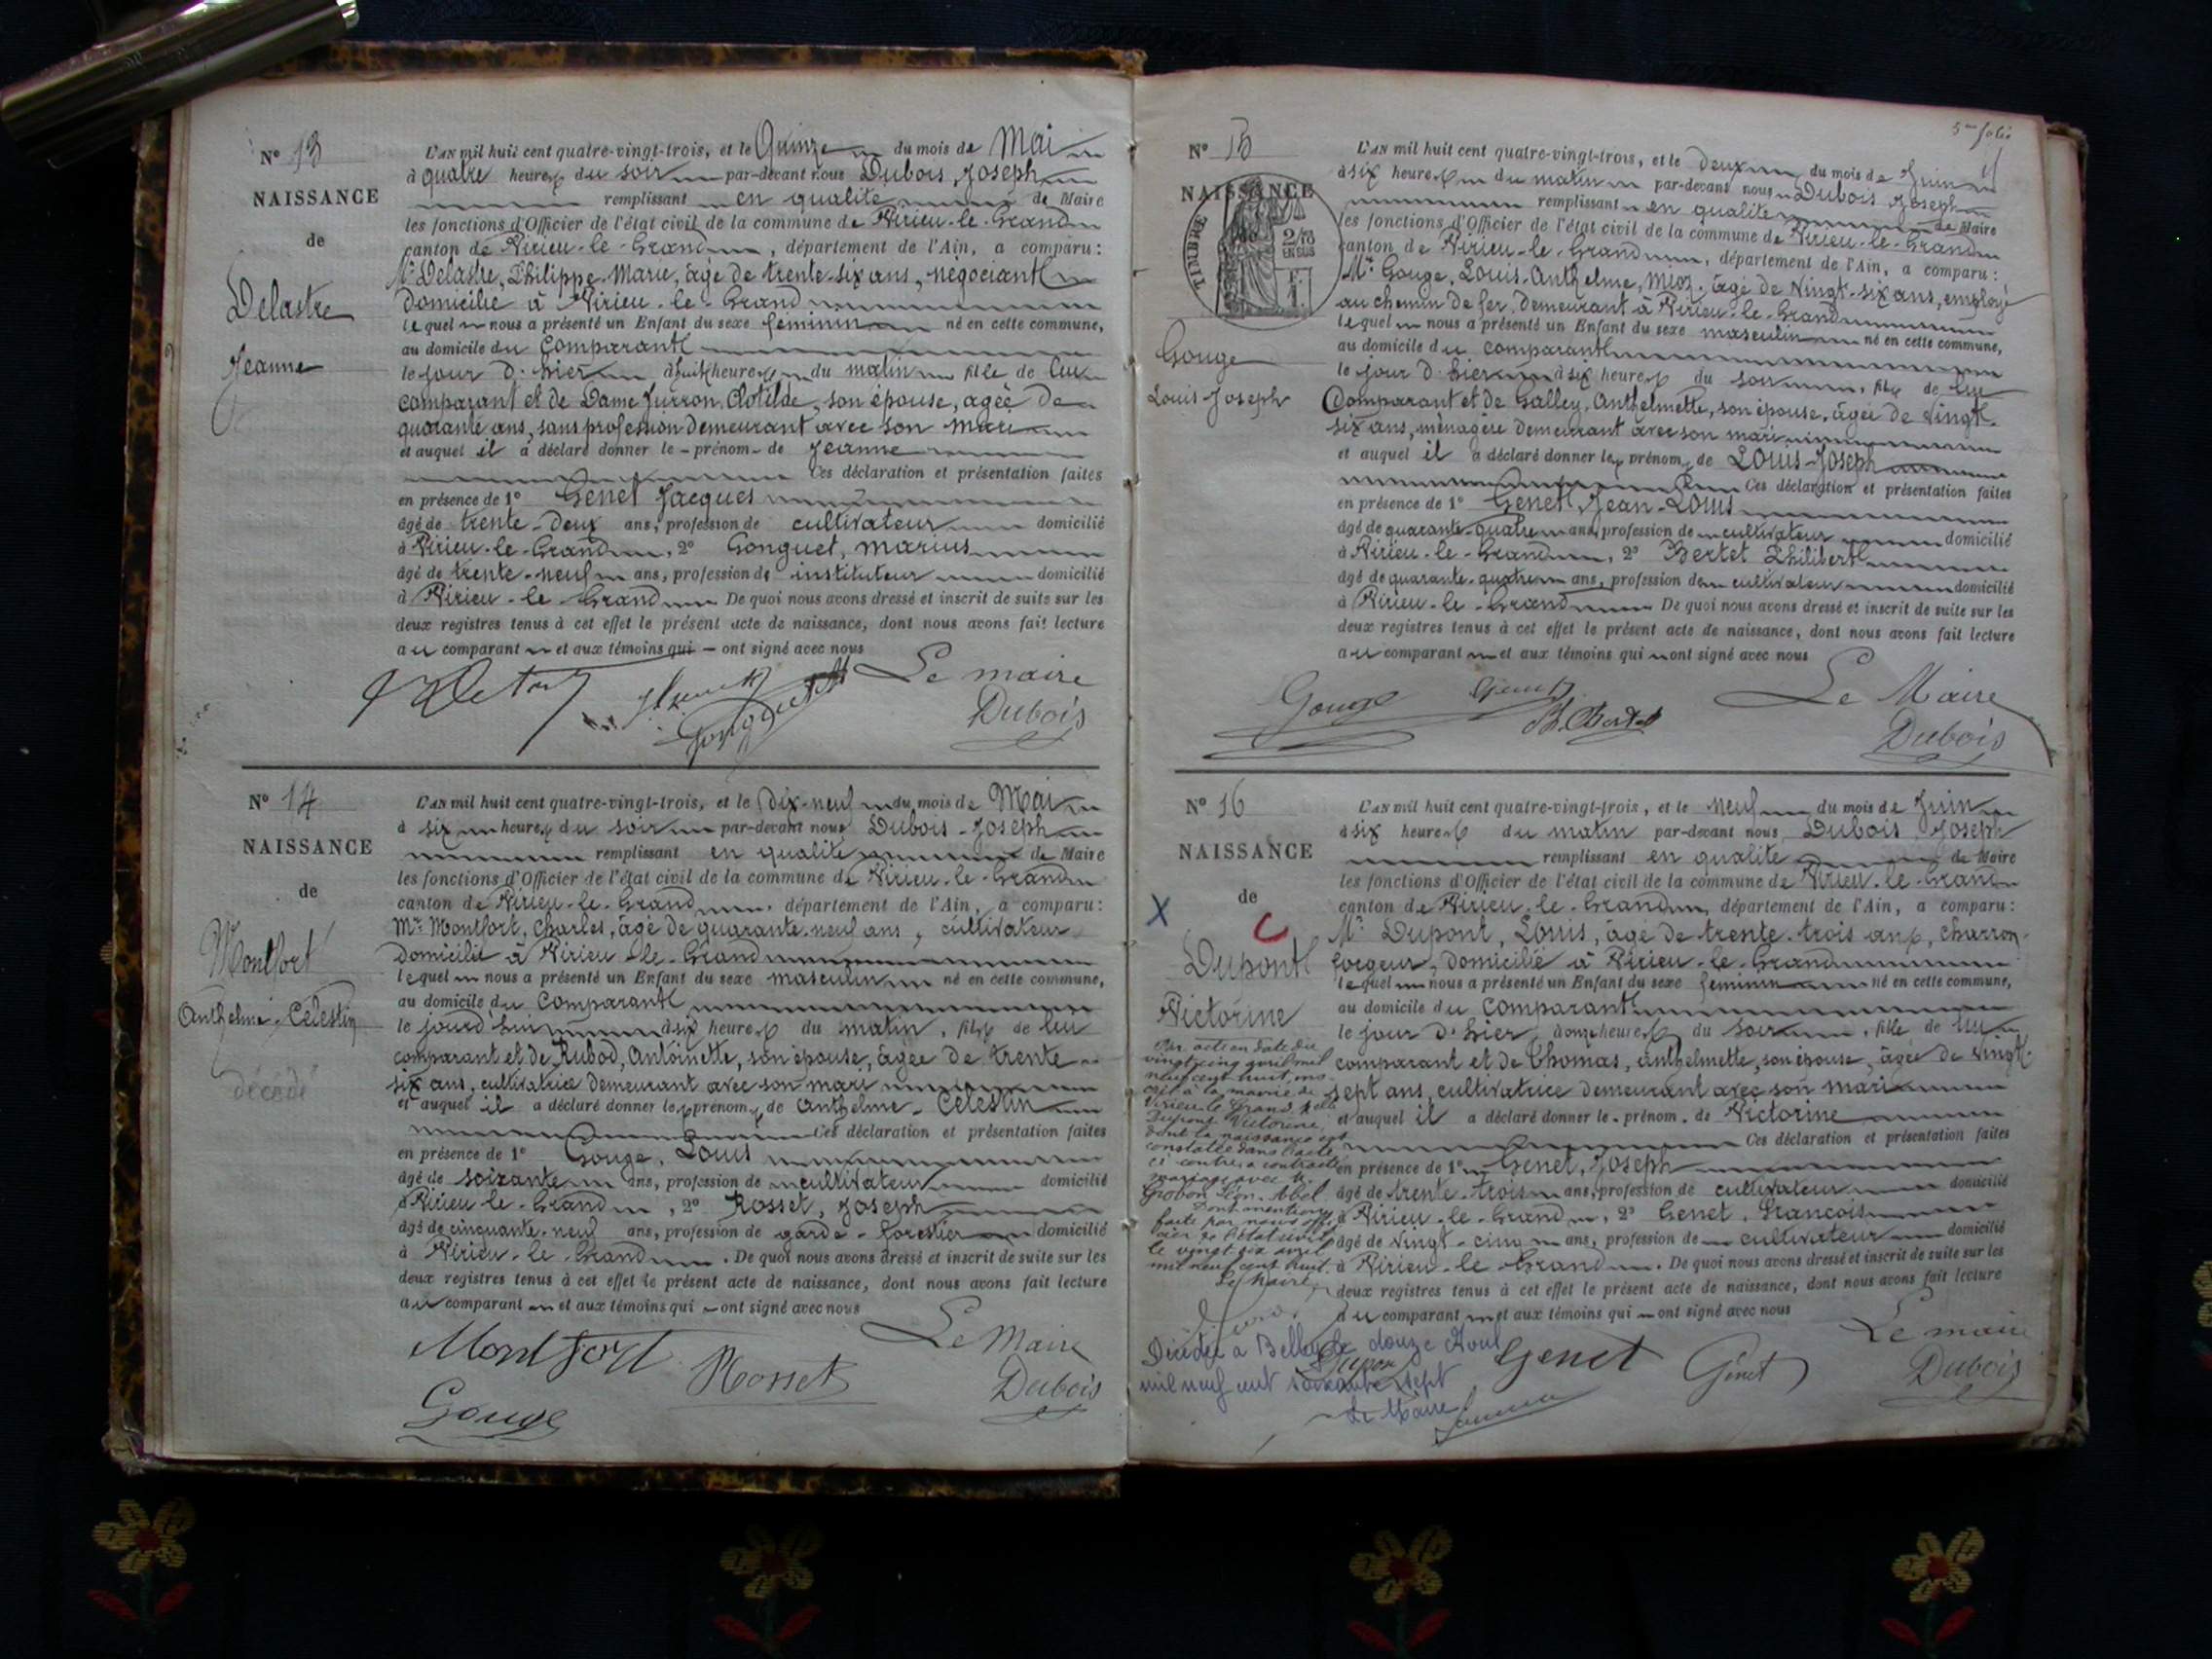 N° 13
NAISSANCE
de
Delastre
Jeanne
L'AN mil huit cent quatre-vingt-trois, et le Quinze du mois de Mai
à quatre heures du soir par-devant nous Dubois, Joseph
remplissant en qualité de Maire
les fonctions d'Officier de l'état civil de la commune de Virieu-le-Grand
canton de Virieu-le-Grand, département de l'Ain, a comparu:
Mr Delastre, Philippe-Marie, âgé de trente-six ans, négociant
domicilié à Virieu-le-Grand
lequel nous a présenté un Enfant du sexe féminin né en cette commune,
au domicile du Comparant
le jour d'hier à huit heures du matin fille de lui
comparant et de Dame Jurron, Clotilde, son épouse, agée de
quarante ans, sans profession demeurant avec son mari
et auquel il a déclaré donner le prénom de Jeanne
Ces déclaration et présentation faites
en présence de 1° Genet Jacques
âgé de trente-deux ans, profession de cultivateur domicilié
à Virieu-le-Grand, 2° Gonguet, Marius
âgé de trente-neuf ans, profession de instituteur domicilié
à Virieu-le-Grand De quoi nous avons dressé et inscrit de suite sur les
deux registres tenus à cet effet le présent acte de naissance, dont nous avons fait lecture
au comparant et aux témoins qui ont signé avec nous
Le maire
Gonguet
Dubois
N° 14
NAISSANCE
de
Montfort
Anthelme-Célestin
décédé
L'AN mil huit cent quatre-vingt-trois, et le Dix-neuf du mois de Mai
à six heures du soir par-devant nous Dubois-Joseph
remplissant en qualité de Maire
les fonctions d'Officier de l'état civil de la commune de Virieu-le-Grand
canton de Virieu-le-Grand, département de l'Ain, a comparu:
Mr Montfort, Charles, âgé de quarante-neuf ans, cultivateur
domicilié à Virieu-le-Grand
lequel nous a présenté un Enfant du sexe masculin né en cette commune,
au domicile du Comparant
le jourd'hui à six heures du matin, fils de lui
comparant et de Rubod, Antoinette, son épouse, âgée de trente-
six ans, cultivatrice demeurant avec son mari
et auquel il a déclaré donner les prénoms de Anthelme-Célestin
Ces déclaration et présentation faites
en présence de 1° Gouge, Louis
âgé de soixante ans, profession de cultivateur domicilié
à Virieu-le-Grand, 2° Rosset, Joseph
âgé de cinquante-neuf ans, profession de garde-forestier domicilié
à Virieu-le-Grand. De quoi nous avons dressé et inscrit de suite sur les
deux registres tenus à cet effet le présent acte de naissance, dont nous avons fait lecture
au comparant et aux témoins qui ont signé avec nous
Montfort Rosset Le Maire
Gouge Dubois
5me folio
N° 15
NAISSANCE
TIMBRE
2/10
EN SUS
Gouge
Louis-Joseph
L'AN mil huit cent quatre-vingt-trois, et le deux du mois de Juin
à six heures du matin par-devant nous Dubois Joseph
remplissant en qualité de Maire
les fonctions d'Officier de l'état civil de la commune de Virieu-le-Grand
canton de Virieu-le-Grand, département de l'Ain, a comparu:
Mr Gouge, Louis-Anthelme, âgé de vingt-six ans, employé
au chemin de fer, demeurant à Virieu-le-Grand
lequel nous a présenté un Enfant du sexe masculin né en cette commune,
au domicile du comparant
le jour d'hier à six heures du soir, fils de lui
Comparant et de Galley, Anthelmette, son épouse, âgée de vingt-
six ans, ménagère demeurant avec son mari
et auquel il a déclaré donner les prénoms de Louis-Joseph
Ces déclaration et présentation faites
en présence de 1° Genet, Jean-Louis
âgé de quarante-quatre ans, profession de cultivateur domicilié
à Virieu-le-Grand, 2° Bertet Philibert
âgé de quarante-quatre ans, profession de cultivateur domicilié
à Virieu-le-Grand De quoi nous avons dressé et inscrit de suite sur les
deux registres tenus à cet effet le présent acte de naissance, dont nous avons fait lecture
au comparant et aux témoins qui ont signé avec nous
Gouge Genet Le Maire
Dubois
N° 16
NAISSANCE
de
X
C
Dupont
Victorine
Par acte en date du
vingt cinq avril mil
neuf cent huit, ins-
crit à la mairie de
Virieu le Grand, Melle
Dupont Victorine,
dont la naissance est
constatée dans l'acte
ci contre, a contracté
mariage avec M.
Grobon Léon-Abel.
Dont mention
faite par nous offi-
cier de l'état civil
le vingt six avril
mil neuf cent huit.
Le Maire,
L'AN mil huit cent quatre-vingt-trois, et le neuf du mois de Juin
à six heures du matin par-devant nous Dubois Joseph
remplissant en qualité de Maire
les fonctions d'Officier de l'état civil de la commune de Virieu-le-Grand
canton de Virieu-le-Grand, département de l'Ain, a comparu:
Mr Dupont, Louis, âgé de trente-trois ans, charron-
forgeur, domicilié à Virieu-le-Grand
lequel nous a présenté un Enfant du sexe féminin né en cette commune,
au domicile du comparant
le jour d'hier à onze heures du soir, fille de lui
comparant et de Thomas, Anthelmette, son épouse, âgée de vingt-
sept ans, cultivatrice demeurant avec son mari
et auquel il a déclaré donner le prénom de Victorine
Ces déclaration et présentation faites
en présence de 1° Genet, Joseph
âgé de trente-trois ans, profession de cultivateur domicilié
à Virieu-le-Grand, 2° Genet, François
âgé de vingt-cinq ans, profession de cultivateur domicilié
à Virieu-le-Grand. De quoi nous avons dressé et inscrit de suite sur les
deux registres tenus à cet effet le présent acte de naissance, dont nous avons fait lecture
au comparant et aux témoins qui ont signé avec nous
Le maire
Dupon Genet Genet Dubois
Décédée à Belley le douze Aout
mil neuf cent soixante sept
Le Maire